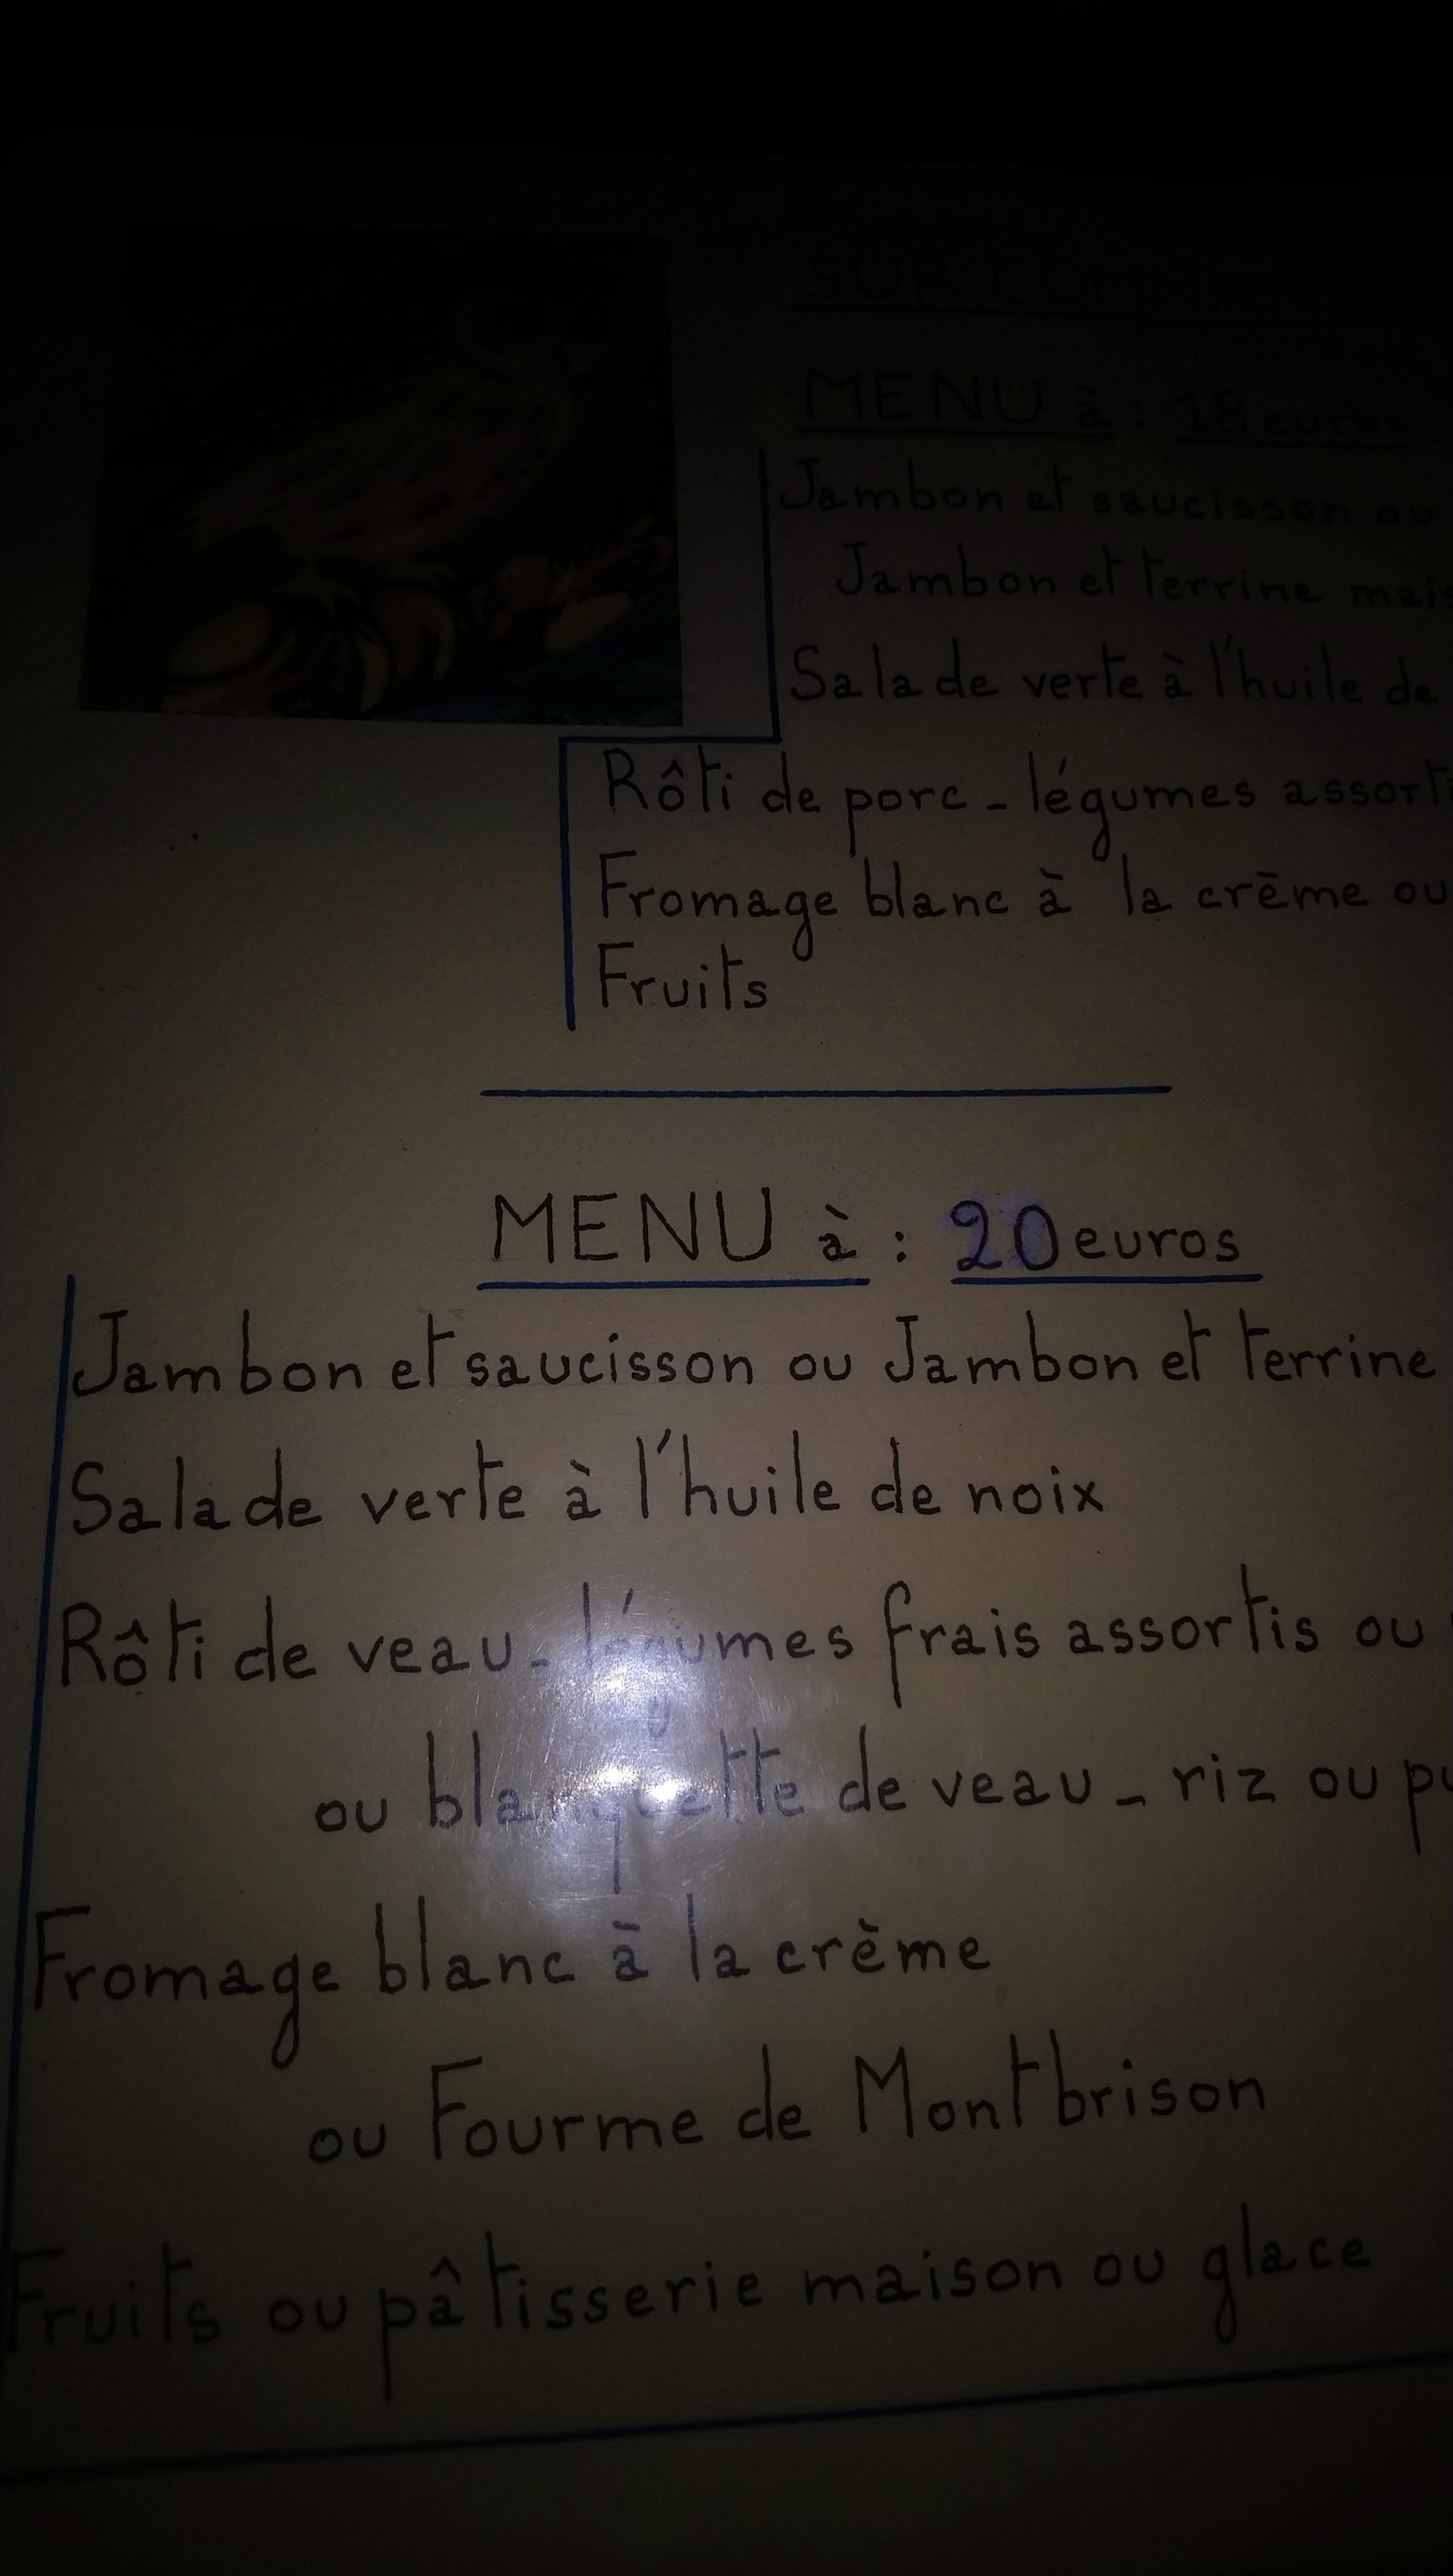 SUR COMMANDE
MENU à : 18 euros
Jambon et saucisson ou
Jambon et terrine
Salade verte à l'huile de
Rôti de porc - légumes
Fromage blanc à la crème ou
Fruits
MENU à : 20 euros
Jambon et saucisson ou Jambon et terrine
Salade verte à l'huile de noix
Rôti de veau - légumes frais assortis ou
ou blanquette de veau - riz ou
Fromage blanc à la crème
ou Fourme de Montbrison
Fruits ou pâtisserie maison ou glace